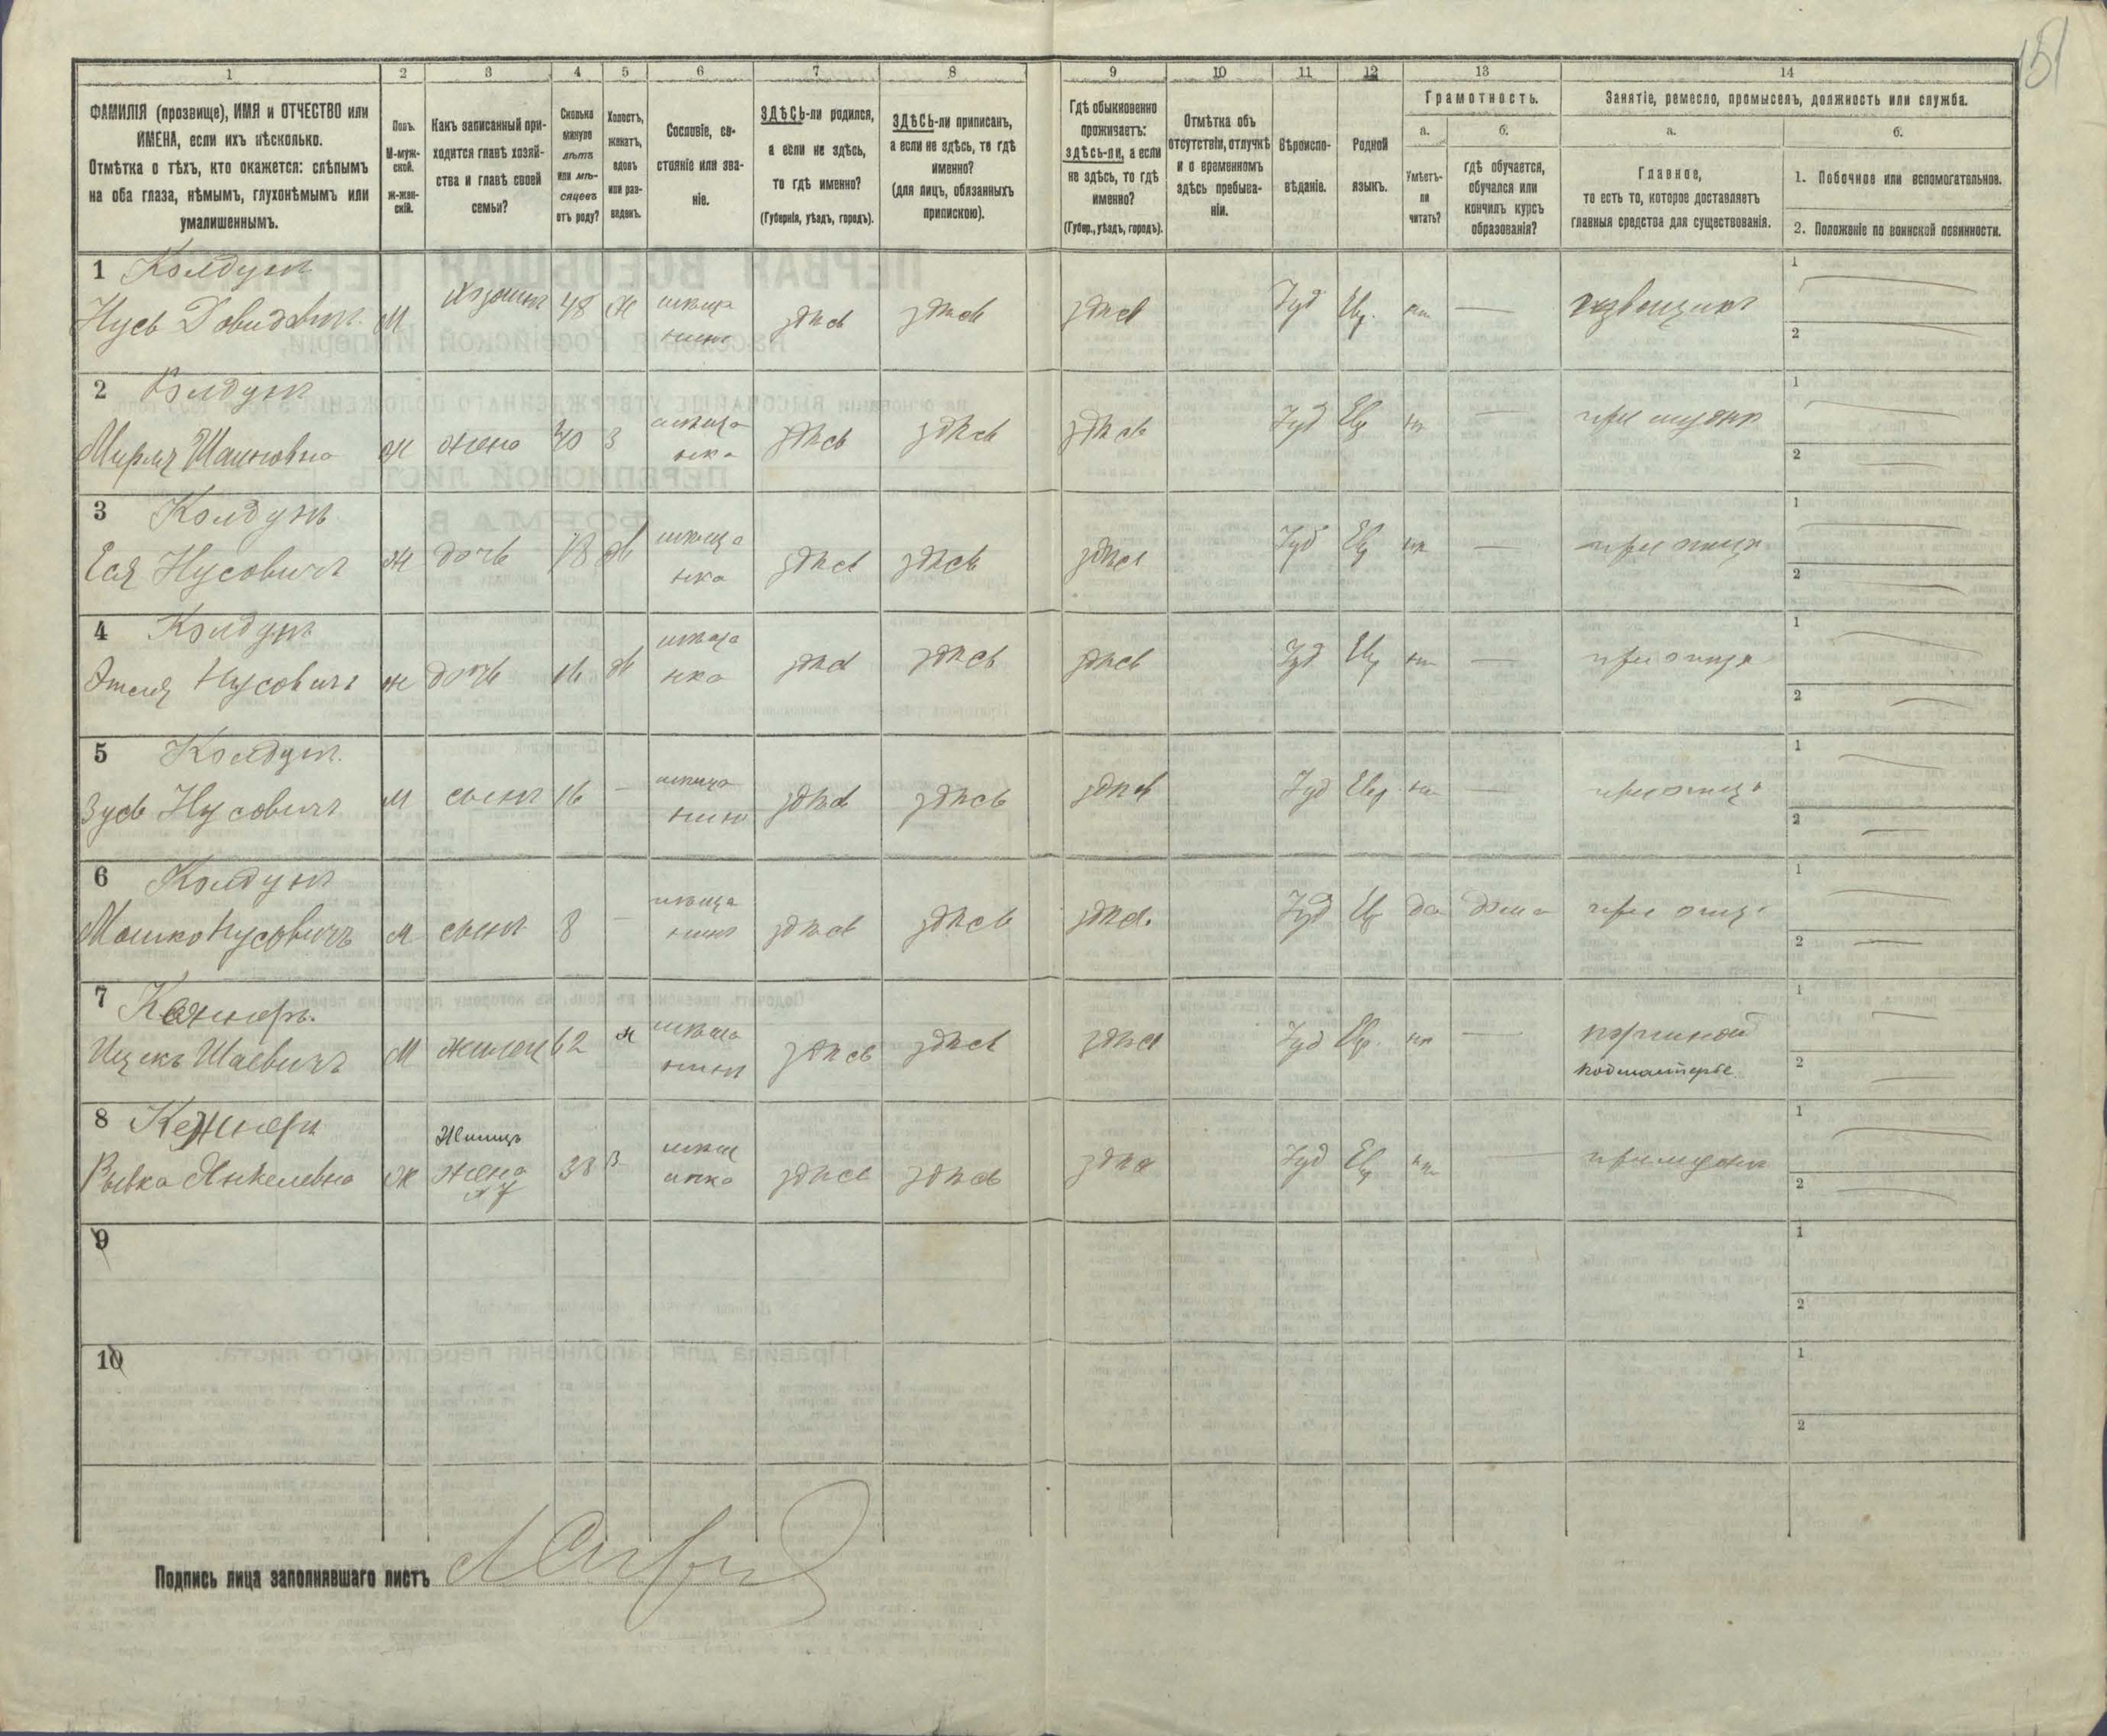 151
1
2
3
4
5
6
7
8
9
10
11
12
13
14
ФАМИЛІЯ (прозвище), ИМЯ и ОТЧЕСТВО или
ИМЕНА, если ихъ нѣсколько.
Отмѣтка о тѣхъ, кто окажется: слѣпымъ
на оба глаза, нѣмымъ, глухонѣмымъ или
умалишеннымъ.
Полъ.
М-муж-
ской.
Ж-жен-
скій.
Какъ записанный при-
ходится главѣ хозяй-
ства и главѣ своей
семьи?
Сколько
минуло
лѣтъ
или мѣ-
сяцевъ
отъ роду?
Холостъ,
женатъ,
вдовъ
или раз-
веденъ.
Сословіе, со-
стояніе или зва-
ніе.
ЗДѢСЬ-ли родился,
а если не здѣсь,
то гдѣ именно?
(Губернія, уѣздъ, городъ).
ЗДѢСЬ-ли приписанъ,
а если не здѣсь, то гдѣ
именно?
(для лицъ, обязанныхъ
припискою).
Гдѣ обыкновенно
проживаетъ:
здѣсь-ли, а если
не здѣсь, то гдѣ
именно?
(Губер., уѣздъ, городъ).
Отмѣтка объ
отсутствіи, отлучкѣ
и о временномъ
здѣсь пребыва-
ніи.
Вѣроиспо-
вѣданіе.
Родной
языкъ.
Грамотность.
а.
Умѣетъ-
ли
читать?
б.
гдѣ обучается,
обучался или
кончилъ курсъ
образованія?
Занятіе, ремесло, промыселъ, должность или служба.
а.
Главное,
то есть то, которое доставляетъ
главныя средства для существованія.
б.
1. Побочное или вспомогательное.
2. Положеніе по воинской повинности.
1 Колдунъ
Нусь Довидовичъ М хозяинъ 48 Ж мѣща нинъ здѣсь здѣсь здѣсь Іуд Евр. — извощикъ 1 2
2 Колдунъ
Мирля Шаиновна Ж жена 40 З мѣща нка здѣсь здѣсь здѣсь Іуд Евр — при мужѣ 1 2
3 Колдунъ
Еся Нусовичъ Ж дочь 18 дѣ мѣща нка здѣсь здѣсь здѣсь Іуд Евр — при отцѣ 1 2
4 Колдунъ
Этля Нусовичъ Ж дочь 16 дѣ мѣща нка здѣсь здѣсь здѣсь Іуд Евр — при отцѣ 1 2
5 Колдунъ
Зусь Нусовичъ М сынъ 16 — мѣща нинъ здѣсь здѣсь здѣсь Іуд Евр — при отцѣ 1 2
6 Колдунъ
Мошко Нусовичъ М сынъ 8 — мѣща нинъ здѣсь здѣсь здѣсь Іуд Евр да дома при отцѣ 1 2
7
Ицекъ Шаевичъ М жилец 62 ж мѣща нинъ здѣсь здѣсь здѣсь Іуд Евр. — портной 1
подмастерье 2
8 Жилицъ 1
Рывка Янкелевна Ж жена 38 З мѣщ анка здѣсь здѣсь здѣсь Іуд Евр — при мужѣ 2
9 1
2
10 1
2
Подпись лица заполнявшаго листъ